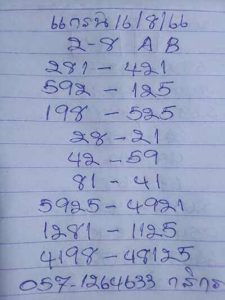 16/8/66
2-8 A B
281 - 421
592 - 125
198 - 525
28 - 21
42 - 59
81 - 41
5925 - 4921
1281 - 1125
4198 - 48125
057-1264633